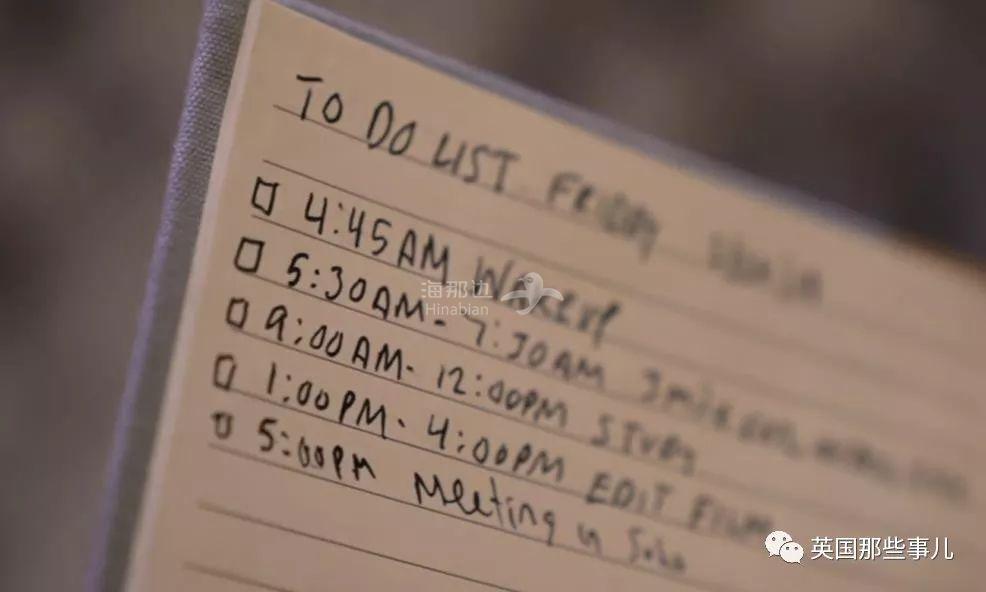 TO DO LIST FRIDAY
4:45AM WAKEUP
5:30AM - 7:30AM 3 mile run,
9:00AM - 12:00PM STUDY
1:00PM - 4:00PM EDIT FILM
5:00PM Meeting in Soho
海那边
Hinabian
英国那些事儿